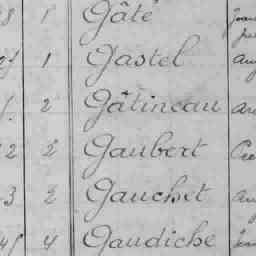 8 1 Gâté
1 Gastel
2 Gâtineau
2 2 Gaubert
3 2 Gauchet
4 Gaudiche